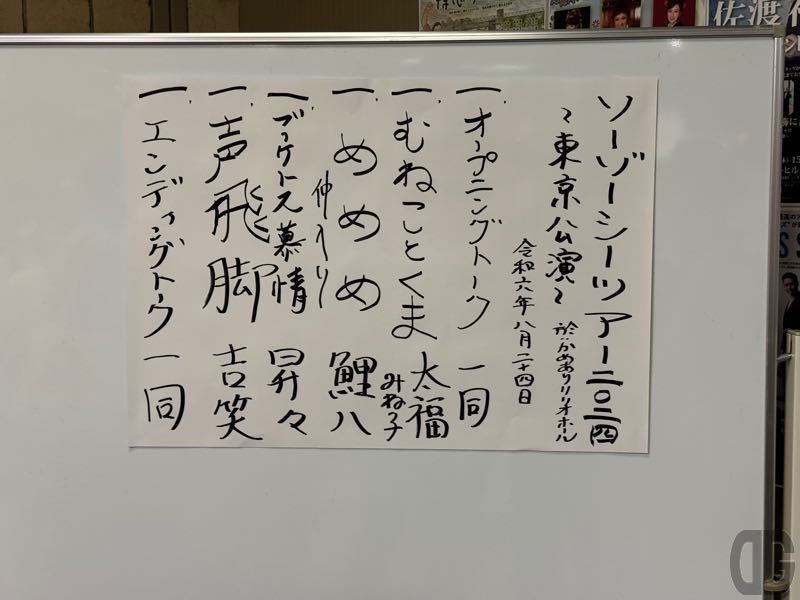 ソーゾーシーツアー二〇二四
〜東京公演〜
於：かめありリリオホール
令和六年八月二十四日
一、オープニングトーク 一同
一、むねしとくま 太福
みね子
一、めめめ 鯉八
仲入り
一、ブーケトス慕情 昇々
一、声飛脚 吉笑
一、エンディングトーク 一同
佐渡
DG